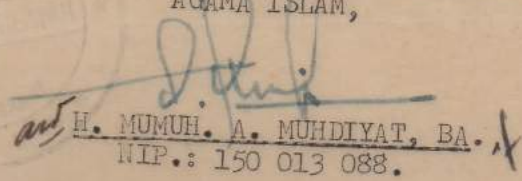 AGAMA ISLAM,
H. MUMUH. A. MUHDIYAT, BA.
NIP.: 150 013 088.